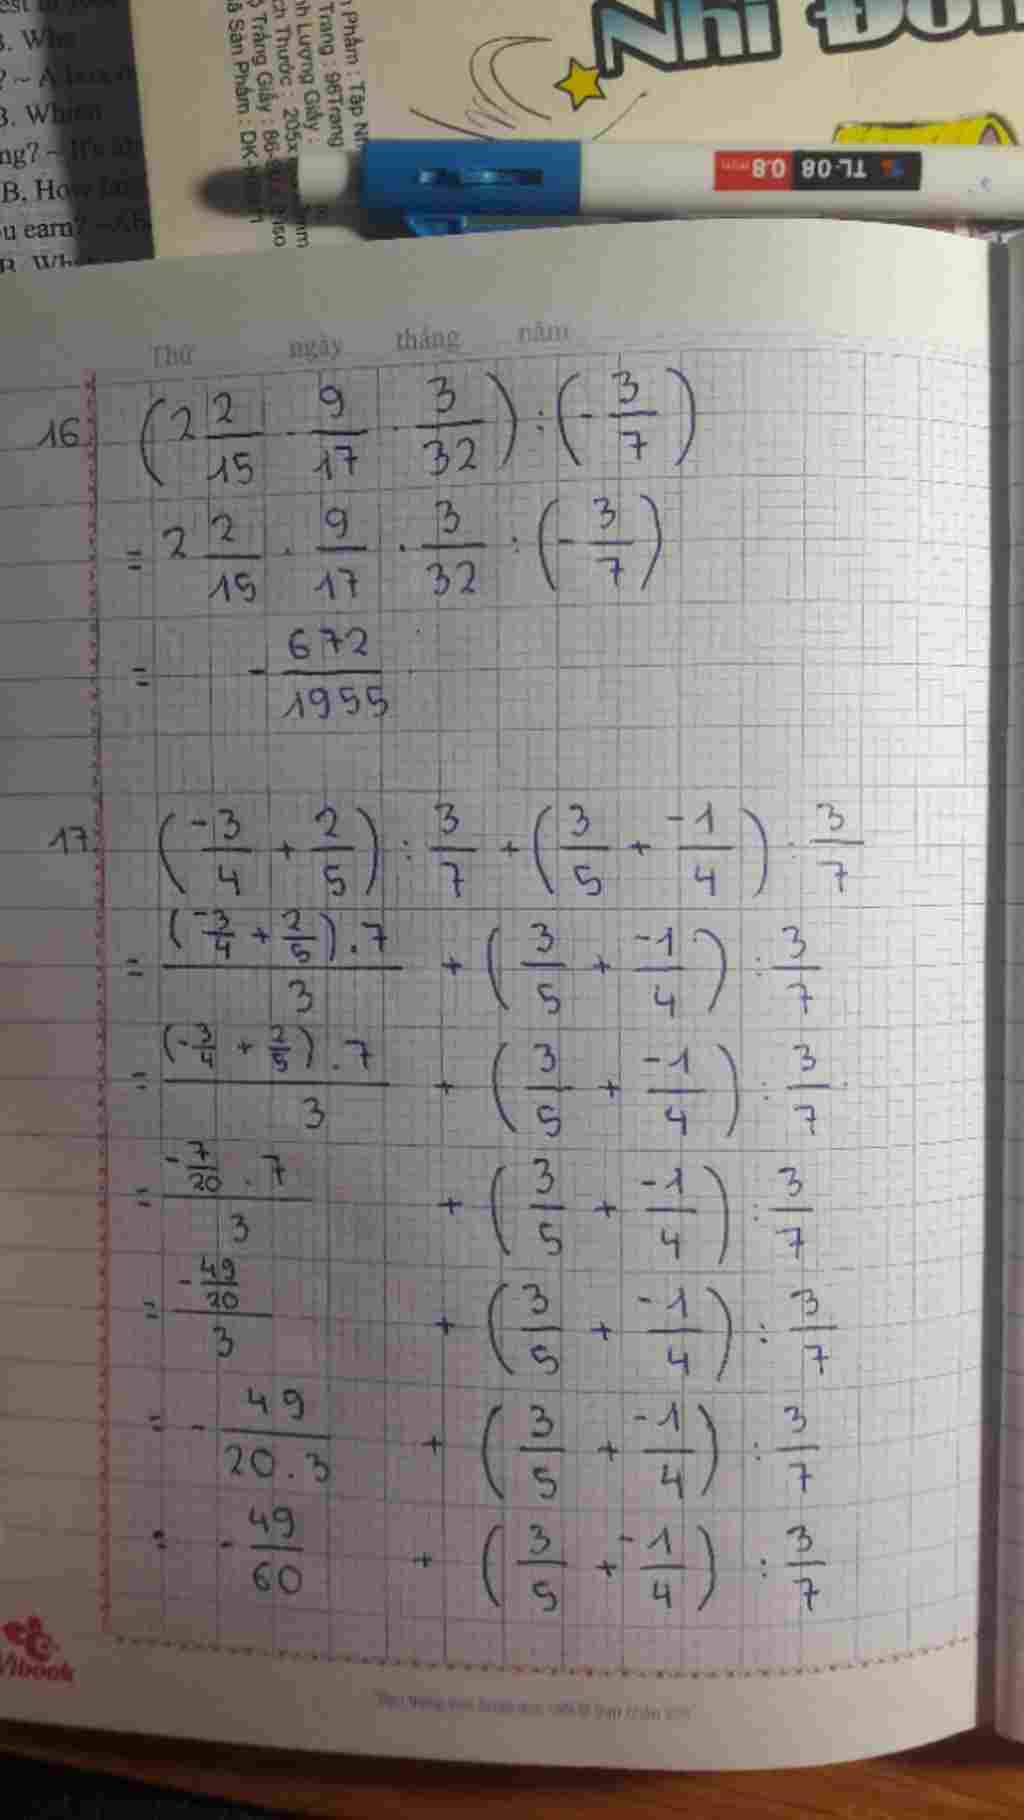 B. Whe
B. When
ng? – It's ab
B. How
u earn? – Ab
B. Wh
Phẩm : Tập Nh
Trang : 96Trang
Lượng Giấy :
Thước : 205x
Trắng Giấy : 86-
Sản Phẩm : DK-
Nhi Đồn
TL-08 0.8 mm
Thứ ngày tháng năm
16. (2 2/15 · 9/17 · 3/32) : (-3/7)
= 2 2/15 · 9/17 · 3/32 : (-3/7)
= -672/1955
17. (-3/4 + 2/5) : 3/7 + (3/5 + -1/4) : 3/7
= (-3/4 + 2/5).7/3 + (3/5 + -1/4) : 3/7
= (-3/4 + 2/5).7/3 + (3/5 + -1/4) : 3/7
= -7/20 . 7/3 + (3/5 + -1/4) : 3/7
= -49/20/3 + (3/5 + -1/4) : 3/7
= - 49/20.3 + (3/5 + -1/4) : 3/7
= - 49/60 + (3/5 + -1/4) : 3/7
Vibook